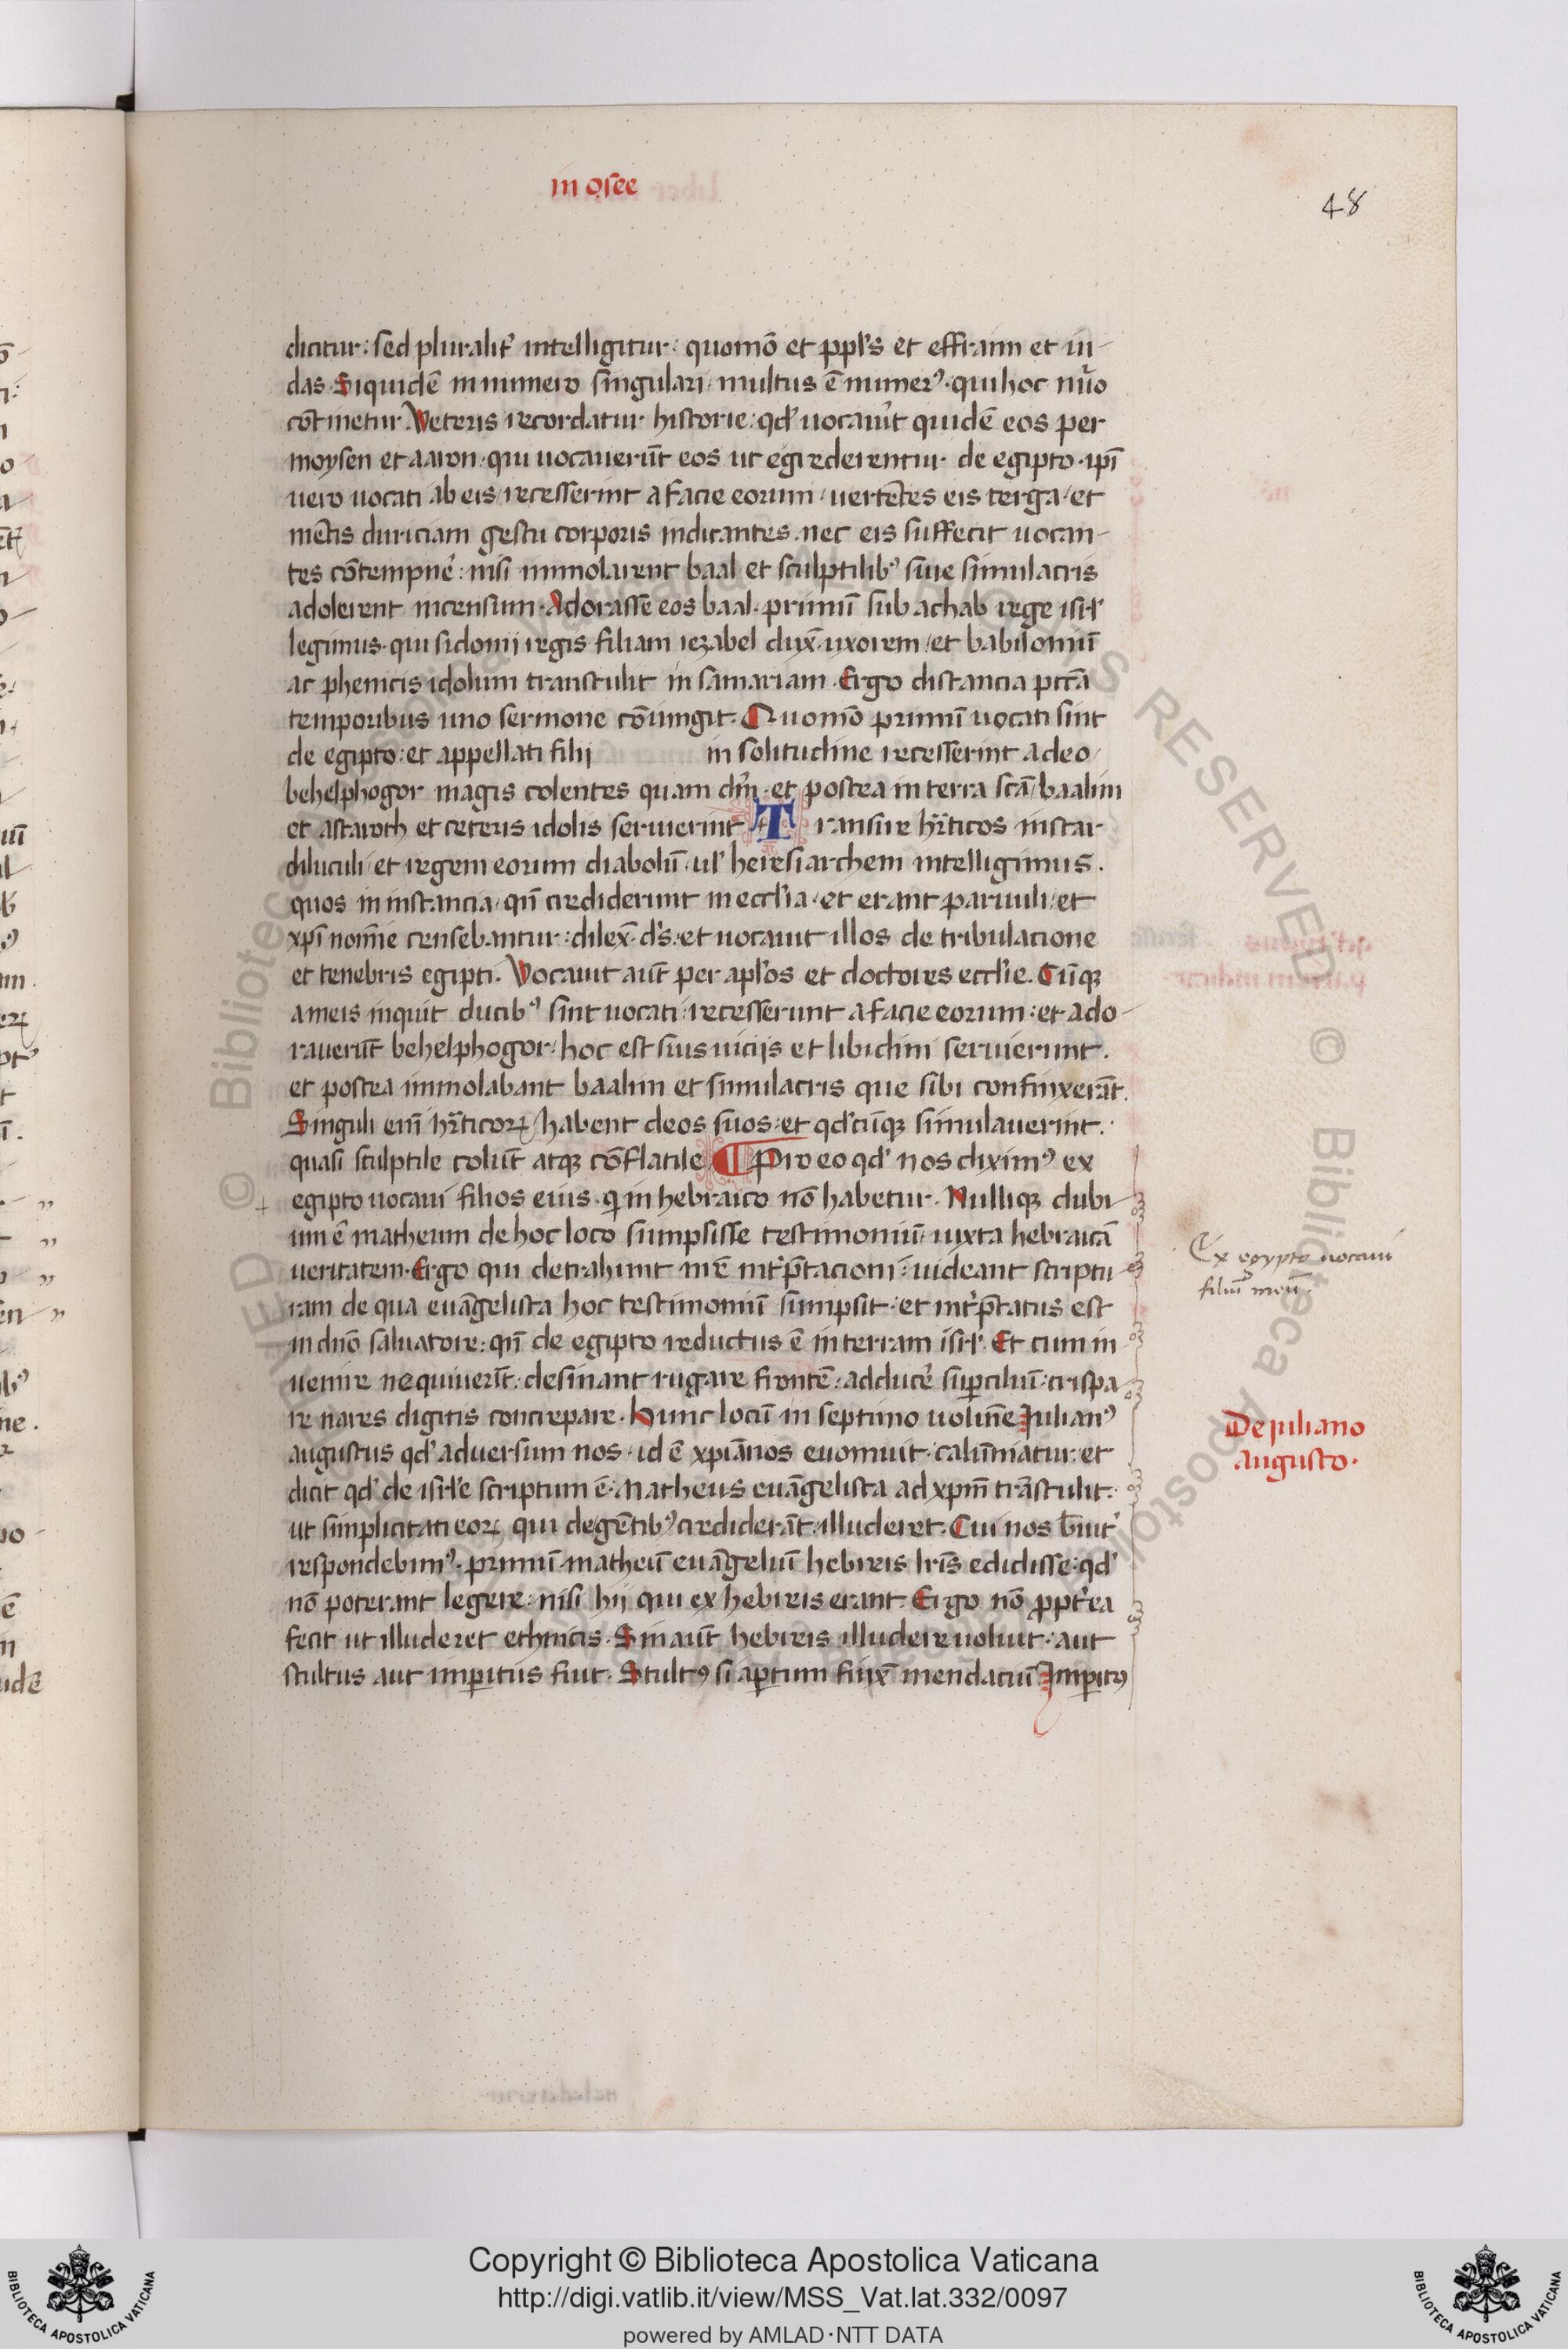 in osee
48
dicitur: sed pluralit᷑ intelligitur: quomō et ppl's et effraim et iu-
das. Siquidē in numero singulari multus ē numerꝰ. qui hoc nūo
cōtinetur. Veteris recordatur historie: qd' uocau̓it quidē eos per
moysen et aaron. qui uocauerūt eos ut egrederentur de egipto. ipī
uero uocati ab eis recesserint a facie eorum uertētes eis terga et
mētis duriciam gestu corporis indicantes. nec eis suffecit uocan-
tes cōtempnē: nisi immolarent baal et sculptilibꝰ siue simulacris
adolerent incensum. Adorasse eos baal. primū sub achab rege isrl'
legimus. qui sidonij regis filiam iezabel dux̄ uxorem et babilonium̄
ac phenicis idolum transtulit in samariam. Ergo distancia pctā
temporibus uno sermone cōiungit. Quomō primū uocati sint
de egipto: et appellati filij in solitudine recesserint a deo
behelphogor magis colentes quam dn̄m. et postea in terra scā baalim
et astaroth et ceteris idolis seruierint Transire hr̄ticos instar
diluculi et regem eorum diabolū. ul' heresiarchem intelligimus.
quos in instancia. qn̄ crediderunt in eccl'ia. et erant paruuli. et
xp̄i noīne censebantur: dilex̄. d's. et uocauit illos de tribulacione
et tenebris egipti. Vocauit aūt per apl'os et doctores eccl'ie. Cūqꝫ
a meis inquit ducibꝰ sint uocati recesserunt a facie eorum: et ado-
rauerūt behelphogor. hoc est suis uiciis et libidini seruierunt.
et postea immolabant baalim et simulacris que sibi confinxerāt.
Singuli eni hr̄ticoꝝ habent deos suos: et qd'cūqꝫ simulauerint.
quasi sculptile colūt atqꝫ cōflatile ¶ Pro eo qd' nos diximꝰ ex
egipto uocaui filios eius. q̄ in hebraico nō habetur. Nulliqꝫ dubi-
um ē matheum de hoc loco sumpsisse testimoniū iuxta hebraicā
ueritatem. Ergo qui detrahunt mē int̓p̄tacioni: uideant scriptu
ram de qua euāgelista hoc testimoniū sumpsit. et int̓p̄tatus est
in dn̄o saluatore: qn̄ de egipto reductus ē in terram isrl'. Et cum in
uenire nequiuerīt: desinant rugare frontē. adducē suꝑciliū. crispa
re nares digitis concrepare. Hunc locū in septimo uoluīne Iulianꝰ
augustus qd' aduersum nos. id ē xpiānos euomuit. calūmniatur: et
dicit qd' de isrl'e scriptum ē. Matheus euāgelista ad xpm̄ trāstulit.
ut simplicitati eoꝝ qui de gētibꝰ crediderāt. illuderet. Cui nos b̄uit̓
respondebimꝰ. primū matheū euāgeliū hebreis lr̄is edidisse: qd'
nō poterant legere: nisi hij qui ex hebreis erant. Ergo nō ꝓpt̓ea
fecit ut illuderet ethnicis. Sin aūt hebreis illudere uoluit: aut
stultus aut imꝑitus fuit. Stultꝰ si aꝑtum finx̄ mendaciū Imꝑitꝰ
Ex egypto uocaui
filiū meū.
De juliano
augusto.
Copyright © Biblioteca Apostolica Vaticana
http://digi.vatlib.it/view/MSS_Vat.lat.332/0097
powered by AMLAD·NTT DATA
BIBLIOTECA APOSTOLICA VATICANA
BIBLIOTECA APOSTOLICA VATICANA